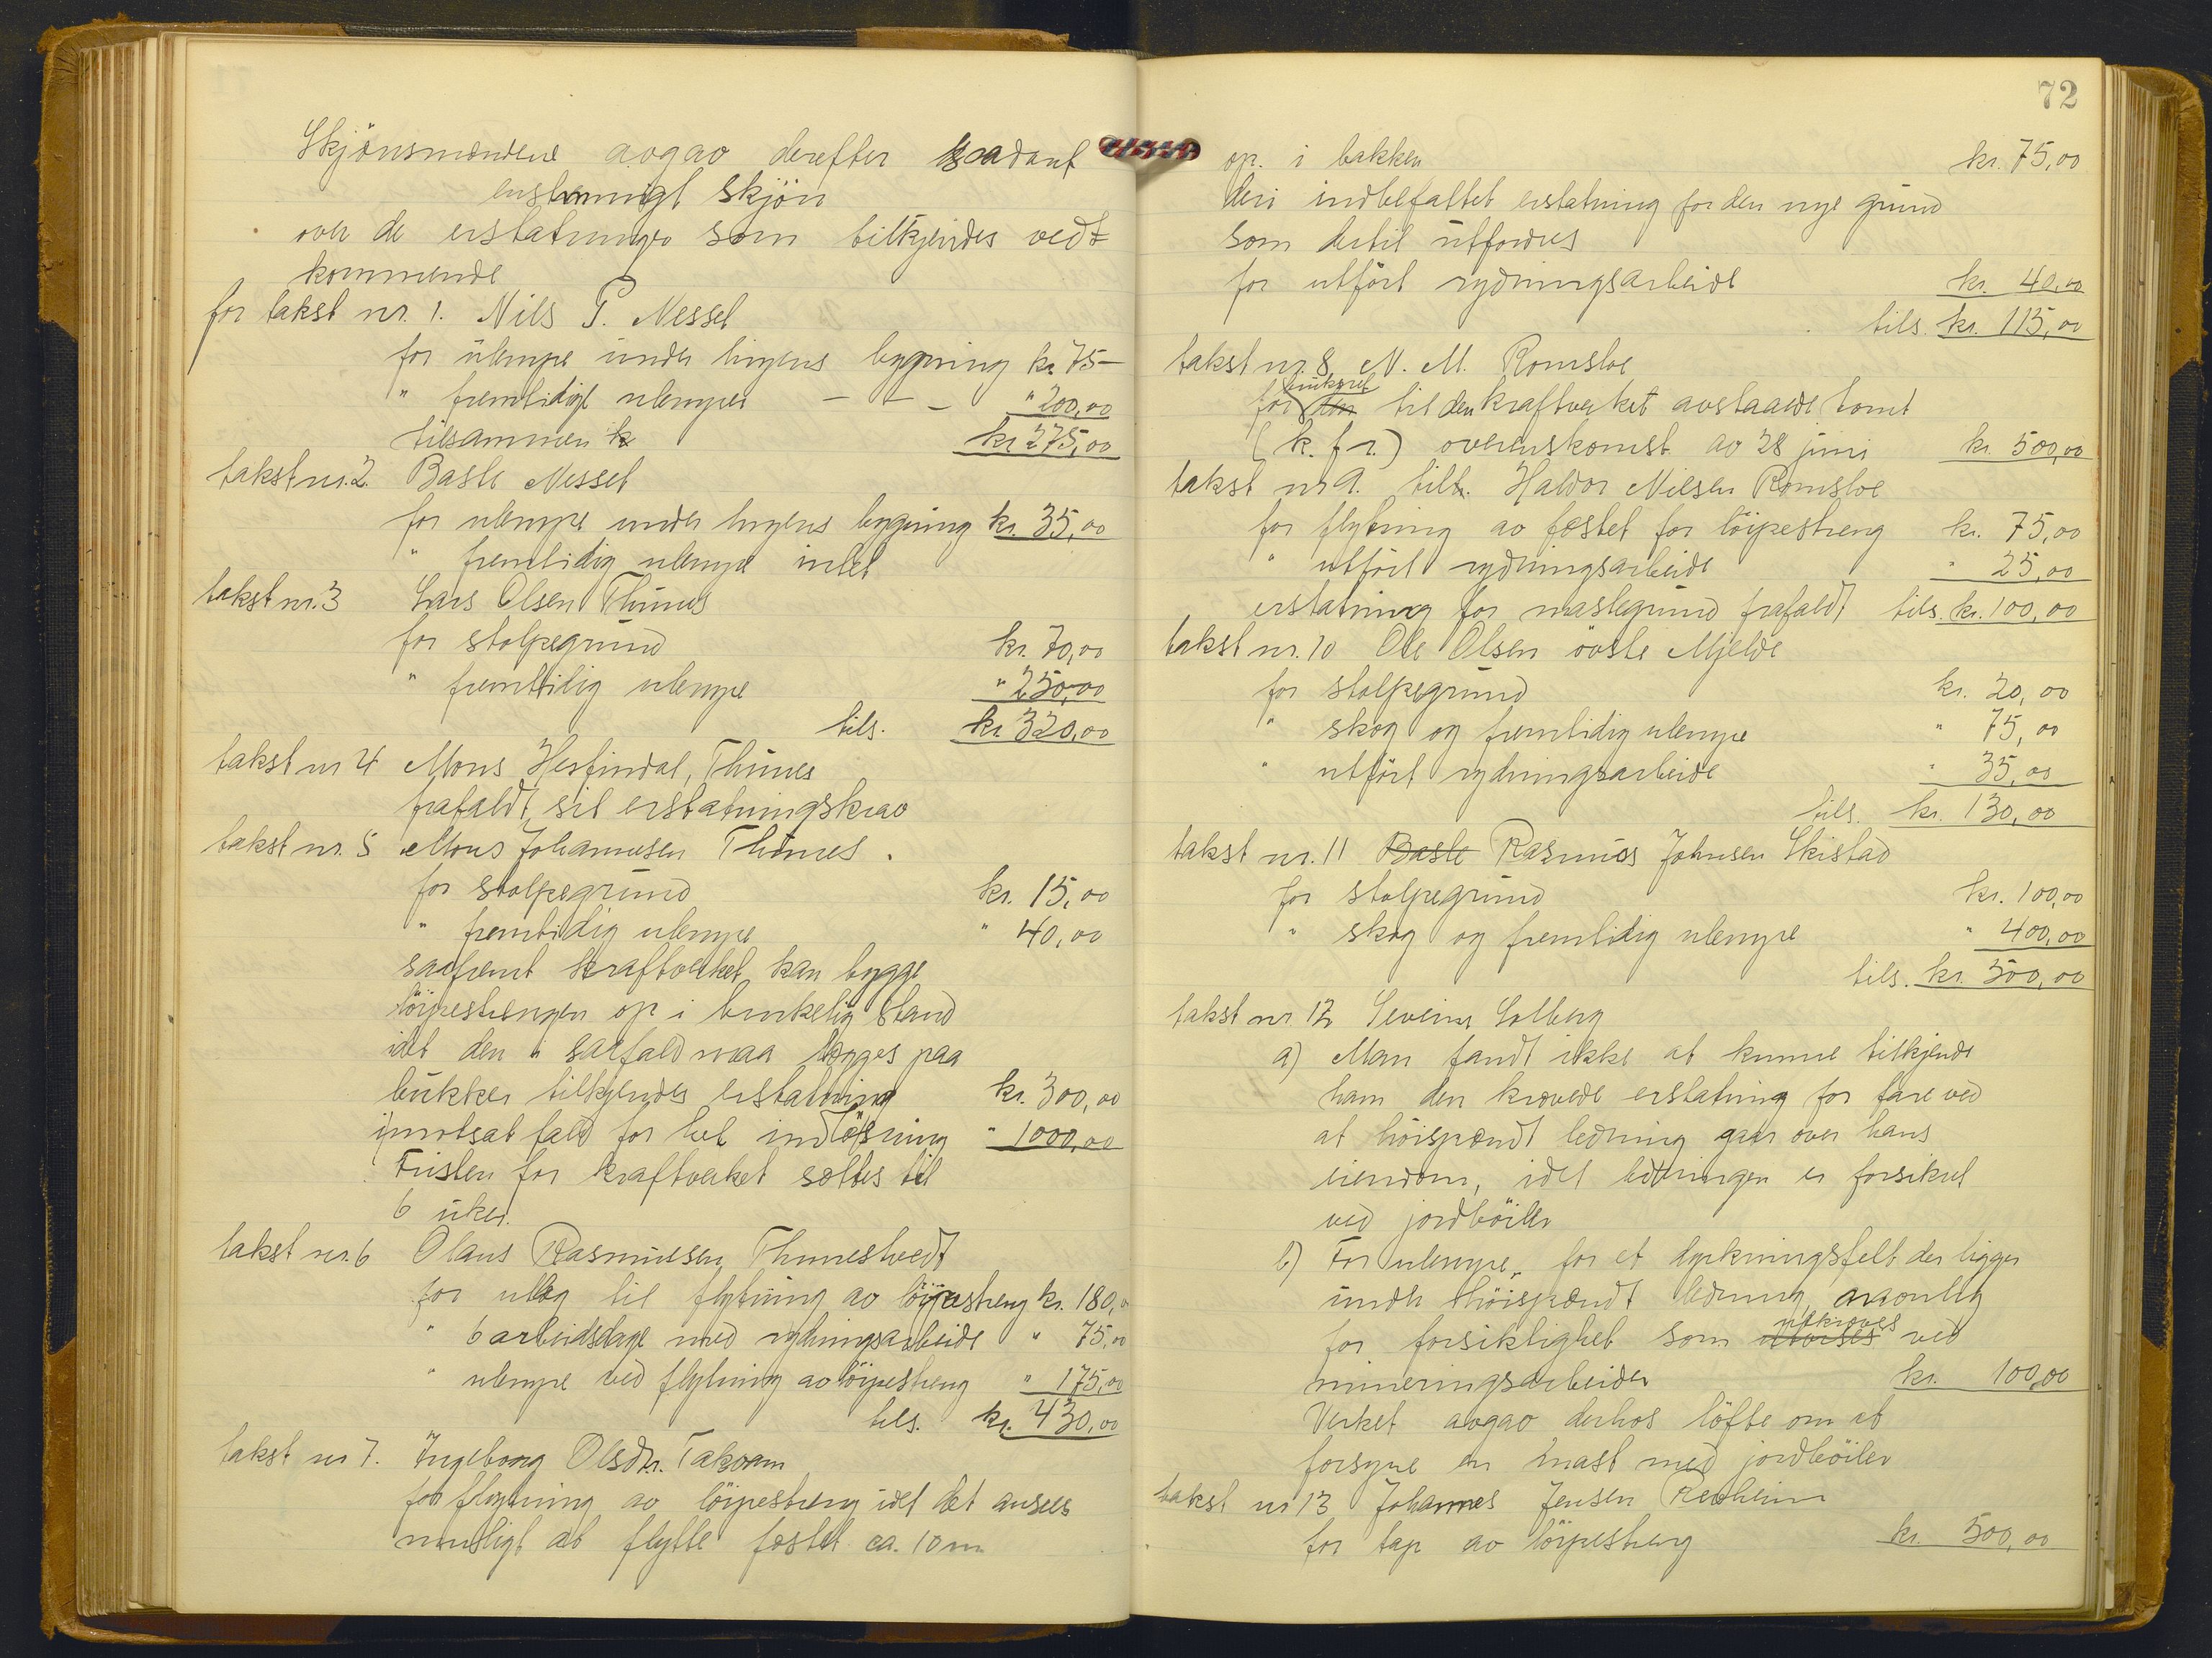 Skjönsmændene avgav derefter saadant
enstemmigt skjön
over de erstatninger som tilkjendes ved-
kommende
for takst nr. 1. Nils P. Nesset
for ulempe under linjens bygning kr 75-
" fremtidige ulemper - - - " 200,00
tilsammen kr 275,00
takst nr. 2. Basle Nesset
for ulempe under linjens bygning kr. 35,00
" fremtidig ulempe intet
takst nr. 3 Lars Olsen Thunes
for stolpegrund kr. 70,00
" fremtidig ulempe " 250,00
tils. kr 320,00
takst nr 4 Mons Hesfindal, Thunes
frafaldt sit erstatningskrav
takst nr. 5 Mons Johannesen Thunes.
for stolpegrund kr. 15,00
" fremtidig ulempe " 40,00
saafremt kraftverket kan bygge
löipestrengen op i brukelig stand
idet den i saafald maa lægges paa
bukker tilkjendes erstatning kr. 300,00
i motsat fald for hel indlösning " 1000,00
Fristen for kraftverket sættes til
6 uker.
takst nr. 6 Olaus Rasmussen Thunestvedt
for utlæg til flytning av löipestreng kr. 180,00
" 6 arbeidsdage med rydningsarbeide " 75,00
" ulempe ved flytning av löipestreng " 175,00
tils. kr. 430,00
takst nr 7. Ingeborg Olsdtr. Takvam
for flytning av löipestreng idet det ansees
muligt at flytte fæstet ca. 10 m
72
op. i bakken kr. 75,00
deri indbefattet erstatning for den nye grund
som dertil utfordres
for utfört rydningsarbeide kr. 40,00
tils. kr. 115,00
takst nr. 8, N. M. Romsloe
for til den kraftverket avstaaede tomt
(k. f r.) overenskomst av 28 juni kr. 500,00
takst nr 9. tilh. Haldor Nilsen Romsloe
for flytning av fæstet for löipestreng kr. 75,00
" utfört rydningsarbeide " 25,00
erstatning for mastegrund frafaldt tils. kr. 100,00
takst nr. 10 Ole Olsen övste Mjelde
for stolpegrund kr. 20,00
" skog og fremtidig ulempe " 75,00
" utfört rydningsarbeide " 35,00
tils. kr. 130,00
takst nr. 11 Basle Rasmus Johnsen Skistad
for stolpegrund kr. 100,00
" skog og fremtidig ulempe " 400,00
tils. kr. 500,00
takst nr 12 Severin Solberg
a) Man fandt ikke at kunne tilkjende
ham den krævede erstatning for fare ved
at höispændt ledning gaar over hans
eiendom, idet ledningen er forsikret
ved jordböiler
b) For ulempe for et dyrkningsfelt der ligger
under höispændt ledning
for forsiktighet som utkræves ved
mineringsarbeider kr. 100,00
Verket avgav derhos löfte om at
forsyne en mast med jordböiler
takst nr 13 Johannes Jensen Reoheim
for tap av löipestreng kr. 500,00